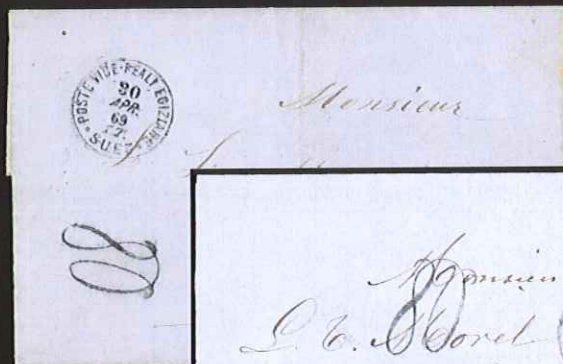 POSTE VICE-REALI EGIZIANE
30
APR.
69
SUEZ
Monsieur
80
Monsieur
80
L. C. Morel